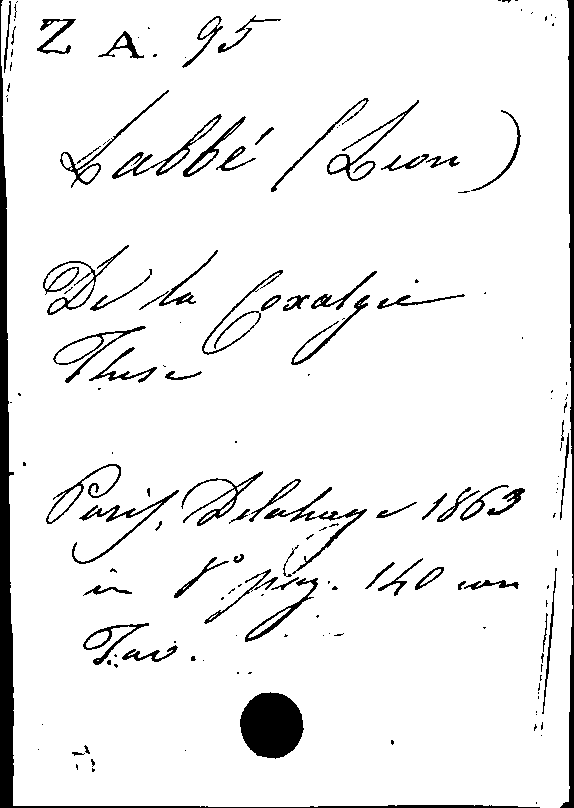 Z A. 95
Labbé (Leon)
De la Coxalgie
These
Paris, Delahaye 1863
in 8° pag. 140 con
Tav.